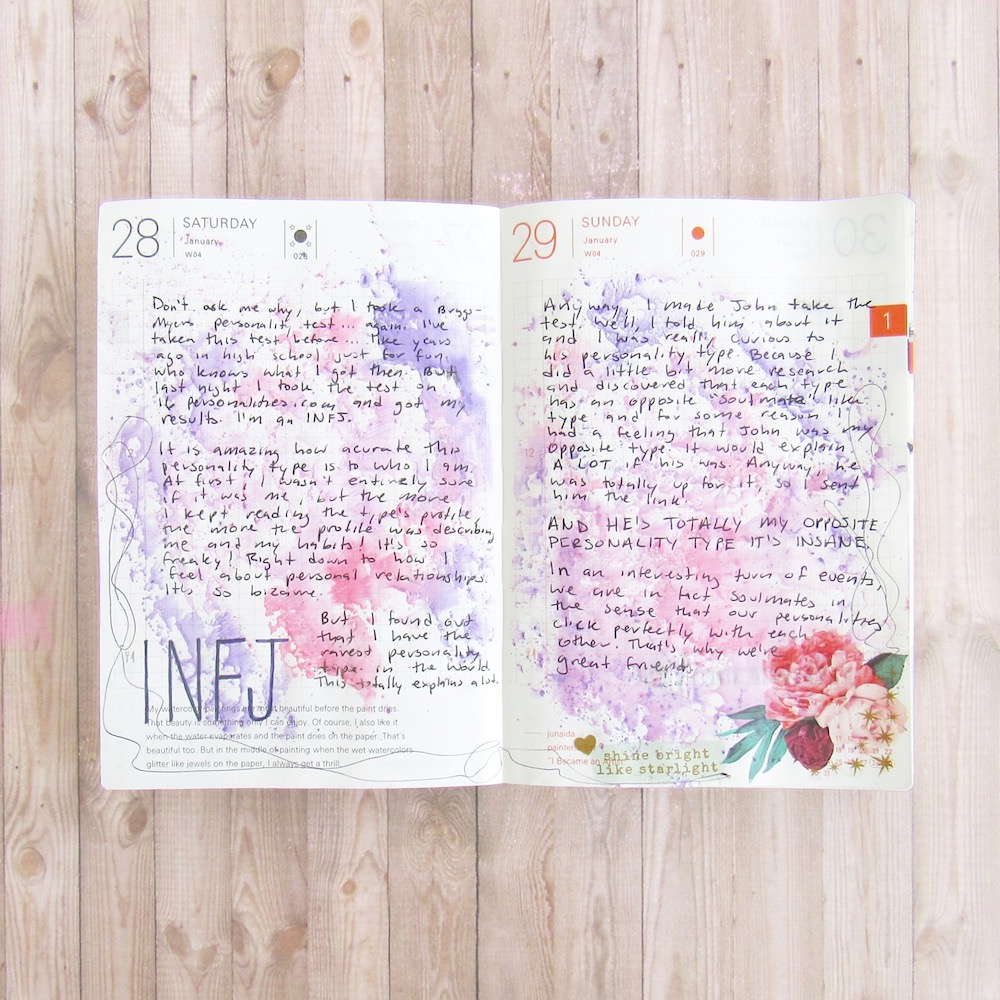 28
SATURDAY
January
W04
028
Don't ask me why, but I took a Briggs-
Myers personality test... again. I've
taken this test before... like years
ago in high school just for fun,
who knows what I got then. But
last night I took the test on
16 personalities.com and got my
results. I'm an INFJ.
It is amazing how acurate this
personality type is to who I am.
At first, I wasn't entirely sure
if it was me, but the more
I kept reading the type's profile,
the more the profile was describing
me and my habits! It's so
freaky! Right down to how I
feel about personal relationships.
It's so bizarre.
But I found out
that I have the
rarest personality
type in the world.
This totally explains a lot.
INFJ
My watercolor paintings are most beautiful before the paint dries.
That beauty is something only I can enjoy. Of course, I also like it
when the water evaporates and the paint dries on the paper. That's
beautiful too. But in the middle of painting when the wet watercolors
glitter like jewels on the paper, I always get a thrill.
29
SUNDAY
January
W04
029
1
Anyway, I made John take the
test. Well, I told him about it
and I was really curious to
his personality type. Because I
did a little bit more research
and discovered that each type
has an opposite "soulmate" like
type and for some reason I
had a feeling that John was my
opposite type. It would explain
A LOT if his was. Anyway, he
was totally up for it, so I sent
him the link.
AND HE'S TOTALLY MY OPPOSITE
PERSONALITY TYPE IT'S INSANE.
In an interesting turn of events,
we are in fact soulmates in
the sense that our personalities
click perfectly with each
other. That's why we're
great friends.
junaida
"I Became an
shine bright
like starlight